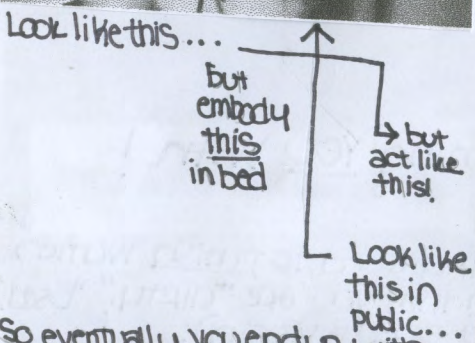 Look like this...
but
embody
this
in bed
but
act like
this!
Look like
this in
public...
So eventually you end up with